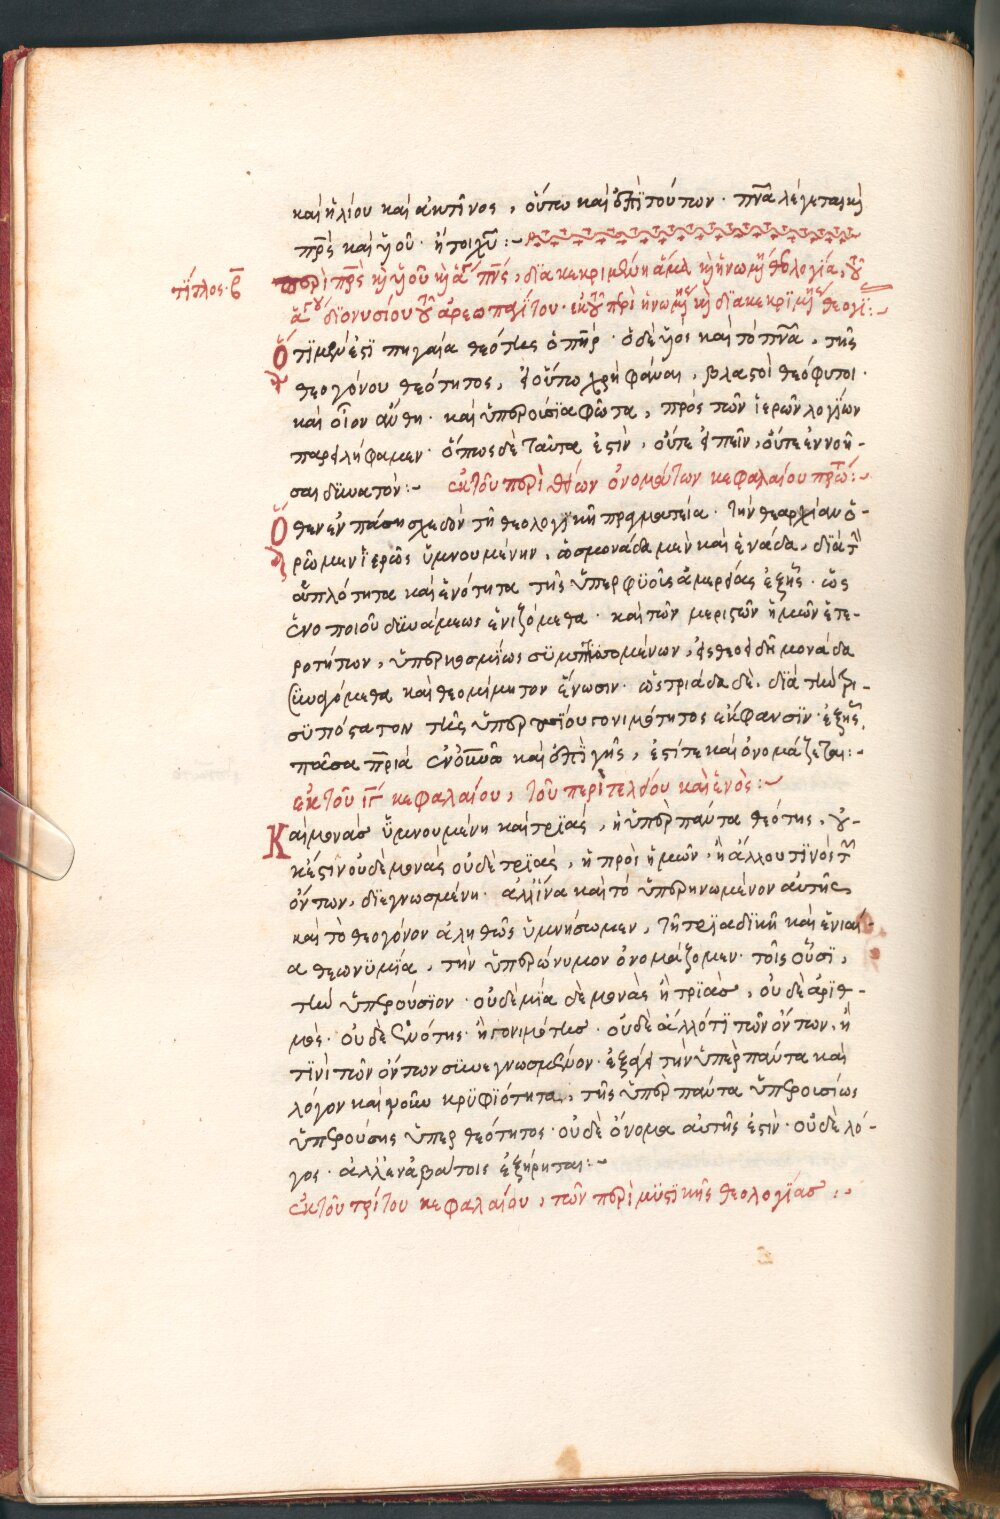 καὶ ἡλίου καὶ ἀκτῖνος, οὕτω καὶ ἐπὶ τούτων · πν̅α λέγεται καὶ
πρ̅ς καὶ υἱοῦ · ἤτοι χυ̅ :~
τίτλος · β̅
περὶ πρ̅ς καὶ υἱοῦ καὶ ἁγίου πν̅ς, διακεκριμένη ἅμα καὶ ἡνωμένη θεολογία, τοῦ
ἁγίου διονυσίου τοῦ ἀρεοπαγίτου · ἐκ τοῦ περὶ ἡνωμένης καὶ διακεκριμένης θεολογίας :~
Ὅτι μέν ἐστι πηγαία θεότης ὁ πη̅ρ · ὁ δὲ υἱός καὶ τὸ πν̅α, τῆς
θεογόνου θεότητος, εἰ οὕτω χρὴ φάναι, βλαστοὶ θεόφυτοι ·
καὶ οἷον ἄνθη · καὶ ὑπερούσια φῶτα, πρὸς τῶν ἱερῶν λογίων
παρειλήφαμεν · ὅπως δὲ ταῦτα ἐστὶν, οὔτε εἰπεῖν, οὔτε ἐννοῆ-
σαι δυνατὸν :~ ἐκ τοῦ περὶ θείων ὀνομάτων κεφαλαίου πρώτου :~
Ὅθεν ἐν πάσῃ σχεδὸν τῇ θεολογικῇ πραγματεία · τὴν θεαρχίαν ὁ-
ρῶμεν ἱερῶς ὑμνουμένην, ὡς μονάδα μὲν καὶ ἑνάδα, διὰ τὴν
ἁπλότητα καὶ ἑνότητα τῆς ὑπερφυοῦς ἀμερείας ἐξ ἧς · ὡς
ἑνοποιοῦ δυνάμεως ἑνιζόμεθα · καὶ τῶν μεριστῶν ἡμῶν ἑτε-
ροτήτων, ὑπερκοσμίως συμπτυσσομένων, εἰς θεοειδῆ μονάδα
συναγόμεθα καὶ θεομίμητον ἕνωσιν · ὡς τριάδα δὲ, διὰ τὴν τρι-
συπόστατον τῆς ὑπερουσίου γονιμότητος ἔκφανσιν · ἐξ ἧς
πᾶσα πριά ἐν οὐνῶ καὶ ἐπὶ γῆς, ἐστί τε καὶ ὀνομάζεται :~
ἐκ τοῦ ιγ̅ κεφαλαίου, τοῦ περὶ τελείου καὶ ἑνός :~
Καὶ μονὰς ὑμνουμένη καὶ τριάς, ἡ ὑπὲρ πάντα θεότης, οὐ-
κ ἔστιν οὐδὲ μονὰς οὐδὲ τριάς, ἡ πρὸς ἡμῶν · ἢ ἄλλου τινός τῶν
ὄντων, διεγνωσμένη · ἀλλ' ἵνα καὶ τὸ ὑπερηνωμένον αὐτῆς
καὶ τὸ θεογόνον ἀληθῶς ὑμνήσωμεν, τῇ τριαδικῇ καὶ ἑνιαί-
α θεωνυμία, τὴν ὑπερώνυμον ὀνομάζομεν · τοῖς οὖσι,
τὴν ὑπερούσιον · οὐδὲ μία δὲ μονὰς ἢ τριὰς, οὐδὲ ἀριθ-
μὸς · οὐδὲ ἑνότης · ἢ γονιμότης · οὐδὲ ἄλλό τι τῶν ὄντων, ἢ
τινὶ τῶν ὄντων συνεγνωσμένον · ἐξάγει τὴν ὑπὲρ πάντα καὶ
λόγον καὶ νοῦν κρυφιότητα, τῆς ὑπὲρ πάντα ὑπερουσίως
ὑπερούσης ὑπερθεότητος · οὐδὲ ὄνομα αὐτῆς ἐστὶν · οὐδὲ λό-
γος · ἀλλ' ἐν ἀβάτοις ἐξῄρηται :~
ἐκ τοῦ τρίτου κεφαλαίου, τῶν περὶ μυστικῆς θεολογίας :~